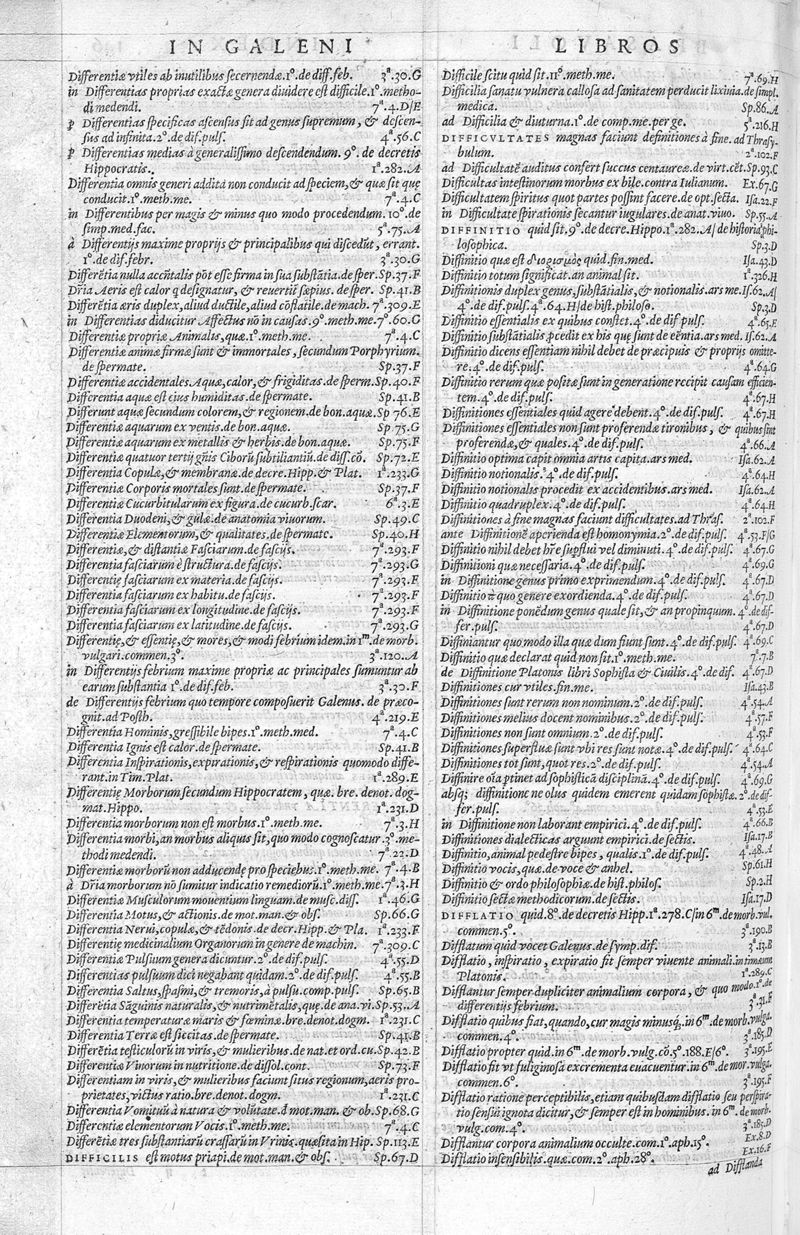 IN GALENI
Differentiæ vtiles ab inutilibus secernendæ.1º.de diff.feb. 3ª.30.G
in Differentias proprias exactæ genera diuidere est difficile.1º.metho-
di medendi. 7ª.4.D/E
p Differentias specificas ascensus sit ad genus supremum, & descen-
sus ad infinita.2º.de dif.puls. 4ª.56.C
p Differentias medias à generalissimo descendendum. 9º. de decretis
Hippocratis. 1ª.282.A
Differentia omnis generi addita non conducit ad speciem,& quæ sit quę
conducit.1º.meth.me. 7ª.4.C
in Differentibus per magis & minus quo modo procedendum. 10º.de
simp.med.fac. 5ª.75.A
à Differentijs maxime proprijs & principalibus qui discedũt, errant.
1º.de dif.febr. 3ª.30.G
Differẽtia nulla accñtalis põt esse firma in sua substãtia.de sper. Sp.37.F
Dr̃ia Aeris est calor q designatur, & reuertit̃ sæpius. de sper. Sp.41.B
Differẽtia æris duplex,aliud ductile,aliud cõflatile.de mach. 7ª.309.E
in Differentias diducitur Affectus nõ in causas.9º.meth.me.7ª.60.G
Differentia propria Animalis, quæ.1º.meth.me. 7ª.4.C
Differentiæ animæ firmæ sunt & immortales, secundum Porphyrium.
de spermate. Sp.37.F
Differentiæ accidentales.Aquæ,calor,& frigiditas.de sperm. Sp.40.F
Differentia aquæ est eius humiditas.de spermate. Sp.41.B
Differunt aquæ secundum colorem,& regionem.de bon.aquæ. Sp 76.E
Differentiæ aquarum ex ventis.de bon.aquæ. Sp 75.G
Differentiæ aquarum ex metallis & herbis.de bon.aquæ. Sp.75.F
Differentiæ quatuor tertij gñis Ciborũ subtiliantiũ.de diss.cõ. Sp.72.E
Differentia Copulæ,& membranæ.de decre.Hipp.& Plat. 1ª.233.G
Differentiæ Corporis mortales sunt.de spermate. Sp.37.F
Differentiæ Cucurbitularum ex figura.de cucurb.scar. 6ª.3.E
Differentia Duodeni,& gulæ.de anatomia viuorum. Sp.49.C
Differentiæ Elementorum,& qualitates.de spermate. Sp.40.H
Differentiæ,& distantiæ Fasciarum.de fascijs. 7ª.293.F
Differentia fasciarum è structura.de fascijs. 7ª.293.G
Differentię fasciarum ex materia.de fascijs. 7ª.293.F
Differentia fasciarum ex habitu.de fascijs. 7ª.293.F
Differentia fasciarum ex longitudine.de fascijs. 7ª.293.F
Differentia fasciarum ex latitudine.de fascijs. 7ª.293.G
Differentię,& essentię,& mores,& modi febrium idem.in 1ᵐ.de morb.
vulgari.commen.3º. 3ª.120.A
in Differentijs febrium maxime propriæ ac principales sumuntur ab
earum substantia 1º.de dif.feb. 3ª.30.F
de Differentijs febrium quo tempore composuerit Galenus. de præco-
gnit.ad Posth. 4ª.219.E
Differentia Hominis,gressibile bipes.1º.meth.med. 7ª.4.C
Differentia Ignis est calor.de spermate. Sp.41.B
Differentia Inspirationis,expirationis,& respirationis quomodo diffe-
rant.in Tim.Plat. 1ª.289.E
Differentię Morborum secundum Hippocratem, quæ. bre. denot. dog-
mat.Hippo. 1ª.231.D
Differentia morborum non est morbus.1º.meth.me. 7ª.3.H
Differentia morbi,an morbus aliquis sit,quo modo cognoscatur.3º.me-
thodi medendi. 7ª.22.D
Differentiæ morborũ non adducendę pro speciebus.1º.meth.me. 7ª.4.B
à Dr̃ia morborum nõ sumitur indicatio remediorũ.1º.meth.me.7ª.3.H
Differentiæ Musculorum mouentium linguam.de musc.diss. 1ª.46.G
Differentia Motus,& actionis.de mot.man.& obs. Sp.66.G
Differentia Nerui,copulæ,& tẽdonis.de decr.Hipp.& Pla. 1ª.233.F
Differentię medicinalium Organorum in genere de machin. 7ª.309.C
Differentiæ Pulsuum genera dicuntur.2º.de dif.puls. 4ª.55.D
Differentias pulsuum dici negabant quidam.2º.de dif.puls. 4ª.55.B
Differentia Saltus,spasmi,& tremoris,à pulsu.comp.puls. Sp.65.B
Differẽtia Sãguinis naturalis,& nutrimẽtalis,quę.de ana.vi. Sp.53.A
Differentia temperaturæ maris & fœminæ.bre.denot.dogm. 1ª.231.C
Differentia Terræ est siccitas.de spermate. Sp.41.B
Differẽtia testiculorũ in viris,& mulieribus.de nat.et ord.cu. Sp.42.B
Differentia Vinorum in nutritione.de dissol.cont. Sp.73.F
Differentiam in viris,& mulieribus faciunt situs regionum,aeris pro-
prietates,victus ratio.bre.denot.dogm. 1ª.231.C
Differentia Vomituũ à natura & volũtate.d mot.man.& ob. Sp.68.G
Differentiæ elementorum Vocis.1º.meth.me. 7ª.4.C
Differẽtiæ tres substantiarũ crassarũ in Vrinis.quæsita in Hip. Sp.113.E
DIFFICILIS est motus priapi.de mot.man.& obs. Sp.67.D
LIBROS
Difficile scitu quid sit.11º.meth.me. 7ª.69.H
Difficilia sanatu vulnera callosa ad sanitatem perducit lixiuia.de simpl.
medica. Sp.86.A
ad Difficilia & diuturna.1º.de comp.me.per ge. 5ª.216.H
DIFFICVLTATES magnas faciunt definitiones à fine. ad Thrasy-
bulum. 2ª.102.F
ad Difficultatẽ auditus confert succus centaureæ.de virt.cẽt. Sp.93.C
Difficultas intestinorum morbus ex bile.contra Iulianum. Ex.67.G
Difficultatem spiritus quot partes possint facere.de opt.secta. Isa.22.F
in Difficultate spirationis secantur iugulares.de anat.viuo. Sp.55.A
DIFFINITIO quid sit,9º.de decre.Hippo.1ª.282.A/ de historia phi-
losophica. Sp.3.D
Diffinitio quæ est διορισμὸς quid.fin.med. Isa.43.D
Diffinitio totum significat.an animal sit. 1ª.326.H
Diffinitionis duplex genus,substãtialis,& notionalis.ars me. Is.62.A/
4º.de dif.puls.4ª.64.H/de hist.philoso. Sp.3.D
Diffinitio essentialis ex quibus conflet.4º.de dif.puls. 4ª.65.E
Diffinitio substãtialis pcedit ex his quę sunt de eẽntia.ars med. Is.62.A
Diffinitio dicens essentiam nihil debet de præcipuis & proprijs omitte-
re.4º.de dif.puls. 4ª.64.G
Diffinitio rerum quæ positæ sunt in generatione recipit causam efficien-
tem.4º.de dif.puls. 4ª.67.H
Diffinitiones essentiales quid agere debent.4º.de dif.puls. 4ª.67.H
Diffinitiones essentiales non sunt proferendæ tironibus, & quibus sint
proferendæ,& quales.4º.de dif.puls. 4ª.66.A
Diffinitio optima capit omnia artis capita.ars med. Isa.62.A
Diffinitio notionalis.4º.de dif.puls. 4ª.64.H
Diffinitio notionalis procedit ex accidentibus.ars med. Isa.62.A
Diffinitio quadruplex.4º.de dif.puls. 4ª.64.H
Diffinitiones à fine magnas faciunt difficultates.ad Thras. 2ª.102.F
ante Diffinitionẽ aperienda est homonymia.2º.de dif.puls. 4ª.53.F/G
Diffinitio nihil debet hr̃e supflui vel diminuti.4º.de dif.puls. 4ª.67.G
Diffinitioni quæ necessaria.4º.de dif.puls. 4ª.69.G
in Diffinitione genus primo exprimendum.4º.de dif.puls. 4ª.67.D
Diffinitio è quo genere exordienda.4º.de dif.puls. 4ª.67.D
in Diffinitione ponẽdum genus quale sit,& an propinquum. 4º.de dif-
fer.puls. 4ª.67.D
Diffiniantur quo modo illa quæ dum fiunt sunt.4º.de dif.puls. 4ª.69.C
Diffinitio quæ declarat quid non sit.1º.meth.me. 7ª.7.B
de Diffinitione Platonis libri Sophista & Ciuilis.4º.de dif. 4ª.67.D
Diffinitiones cur vtiles.fin.me. Isa.43.B
Diffinitiones sunt rerum non nominum.2º.de dif.puls. 4ª.54.A
Diffinitiones melius docent nominibus.2º.de dif.puls. 4ª.57.F
Diffinitiones non sunt omnium.2º.de dif.puls. 4ª.53.F
Diffinitiones superfluæ sunt vbi res sunt notæ.4º.de dif.puls. 4ª.64.C
Diffinitiones tot sunt,quot res.2º.de dif.puls. 4ª.54.A
Diffinire oĩa ptinet ad sophisticã disciplinã.4º.de dif.puls. 4ª.69.G
absq; diffinitione ne olus quidem emerent quidam sophistæ. 2º.de dif-
fer.puls. 4ª.53.E
in Diffinitione non laborant empirici.4º.de dif.puls. 4ª.66.B
Diffinitiones dialecticas arguunt empirici.de sectis. Isa.17.B
Diffinitio,animal pedestre bipes, qualis.1º.de dif.puls. 4ª.48.A
Diffinitio vocis,quæ.de voce & anhel. Sp.61.H
Diffinitio & ordo philosophiæ.de hist.philos. Sp.2.H
Diffinitio sectæ methodicorum.de sectis. Isa.17.D
DIFFLATIO quid.8º.de decretis Hipp.1ª.278.C/in 6ᵐ.de morb.vul.
commen.5º. 3ª.190.B
Difflatum quid vocet Galenus.de symp.dif. 3ª.13.B
Difflatio, inspiratio, expiratio fit semper viuente animali.in timæum
Platonis. 1ª.289.C
Difflantur semper dupliciter animalium corpora, & quo modo.1º.de
differentijs febrium. 3ª.31.F
Difflatio quibus fiat,quando,cur magis minusq;.in 6ᵐ.de morb.vulga.
commen.4º. 3ª.185.D
Difflatio propter quid.in 6ᵐ.de morb.vulg.cõ.5º.188.E/6º. 3ª.195.E
Difflatio fit vt fuliginosa excrementa euacuentur.in 6ᵐ.de mor.vulga.
commen.6º. 3ª.195.F
Difflatio ratione perceptibilis,etiam quibusdam difflatio seu perspira-
tio sensui ignota dicitur,& semper est in hominibus. in 6ᵐ. de morb.
vulg.com.4º. 3ª.185.D
Difflantur corpora animalium occulte.com.1º.aph.15º. Ex.8.D
Difflatio insensibilis.quæ.com.2º.aph.28º. Ex.16.F
ad Difflanda